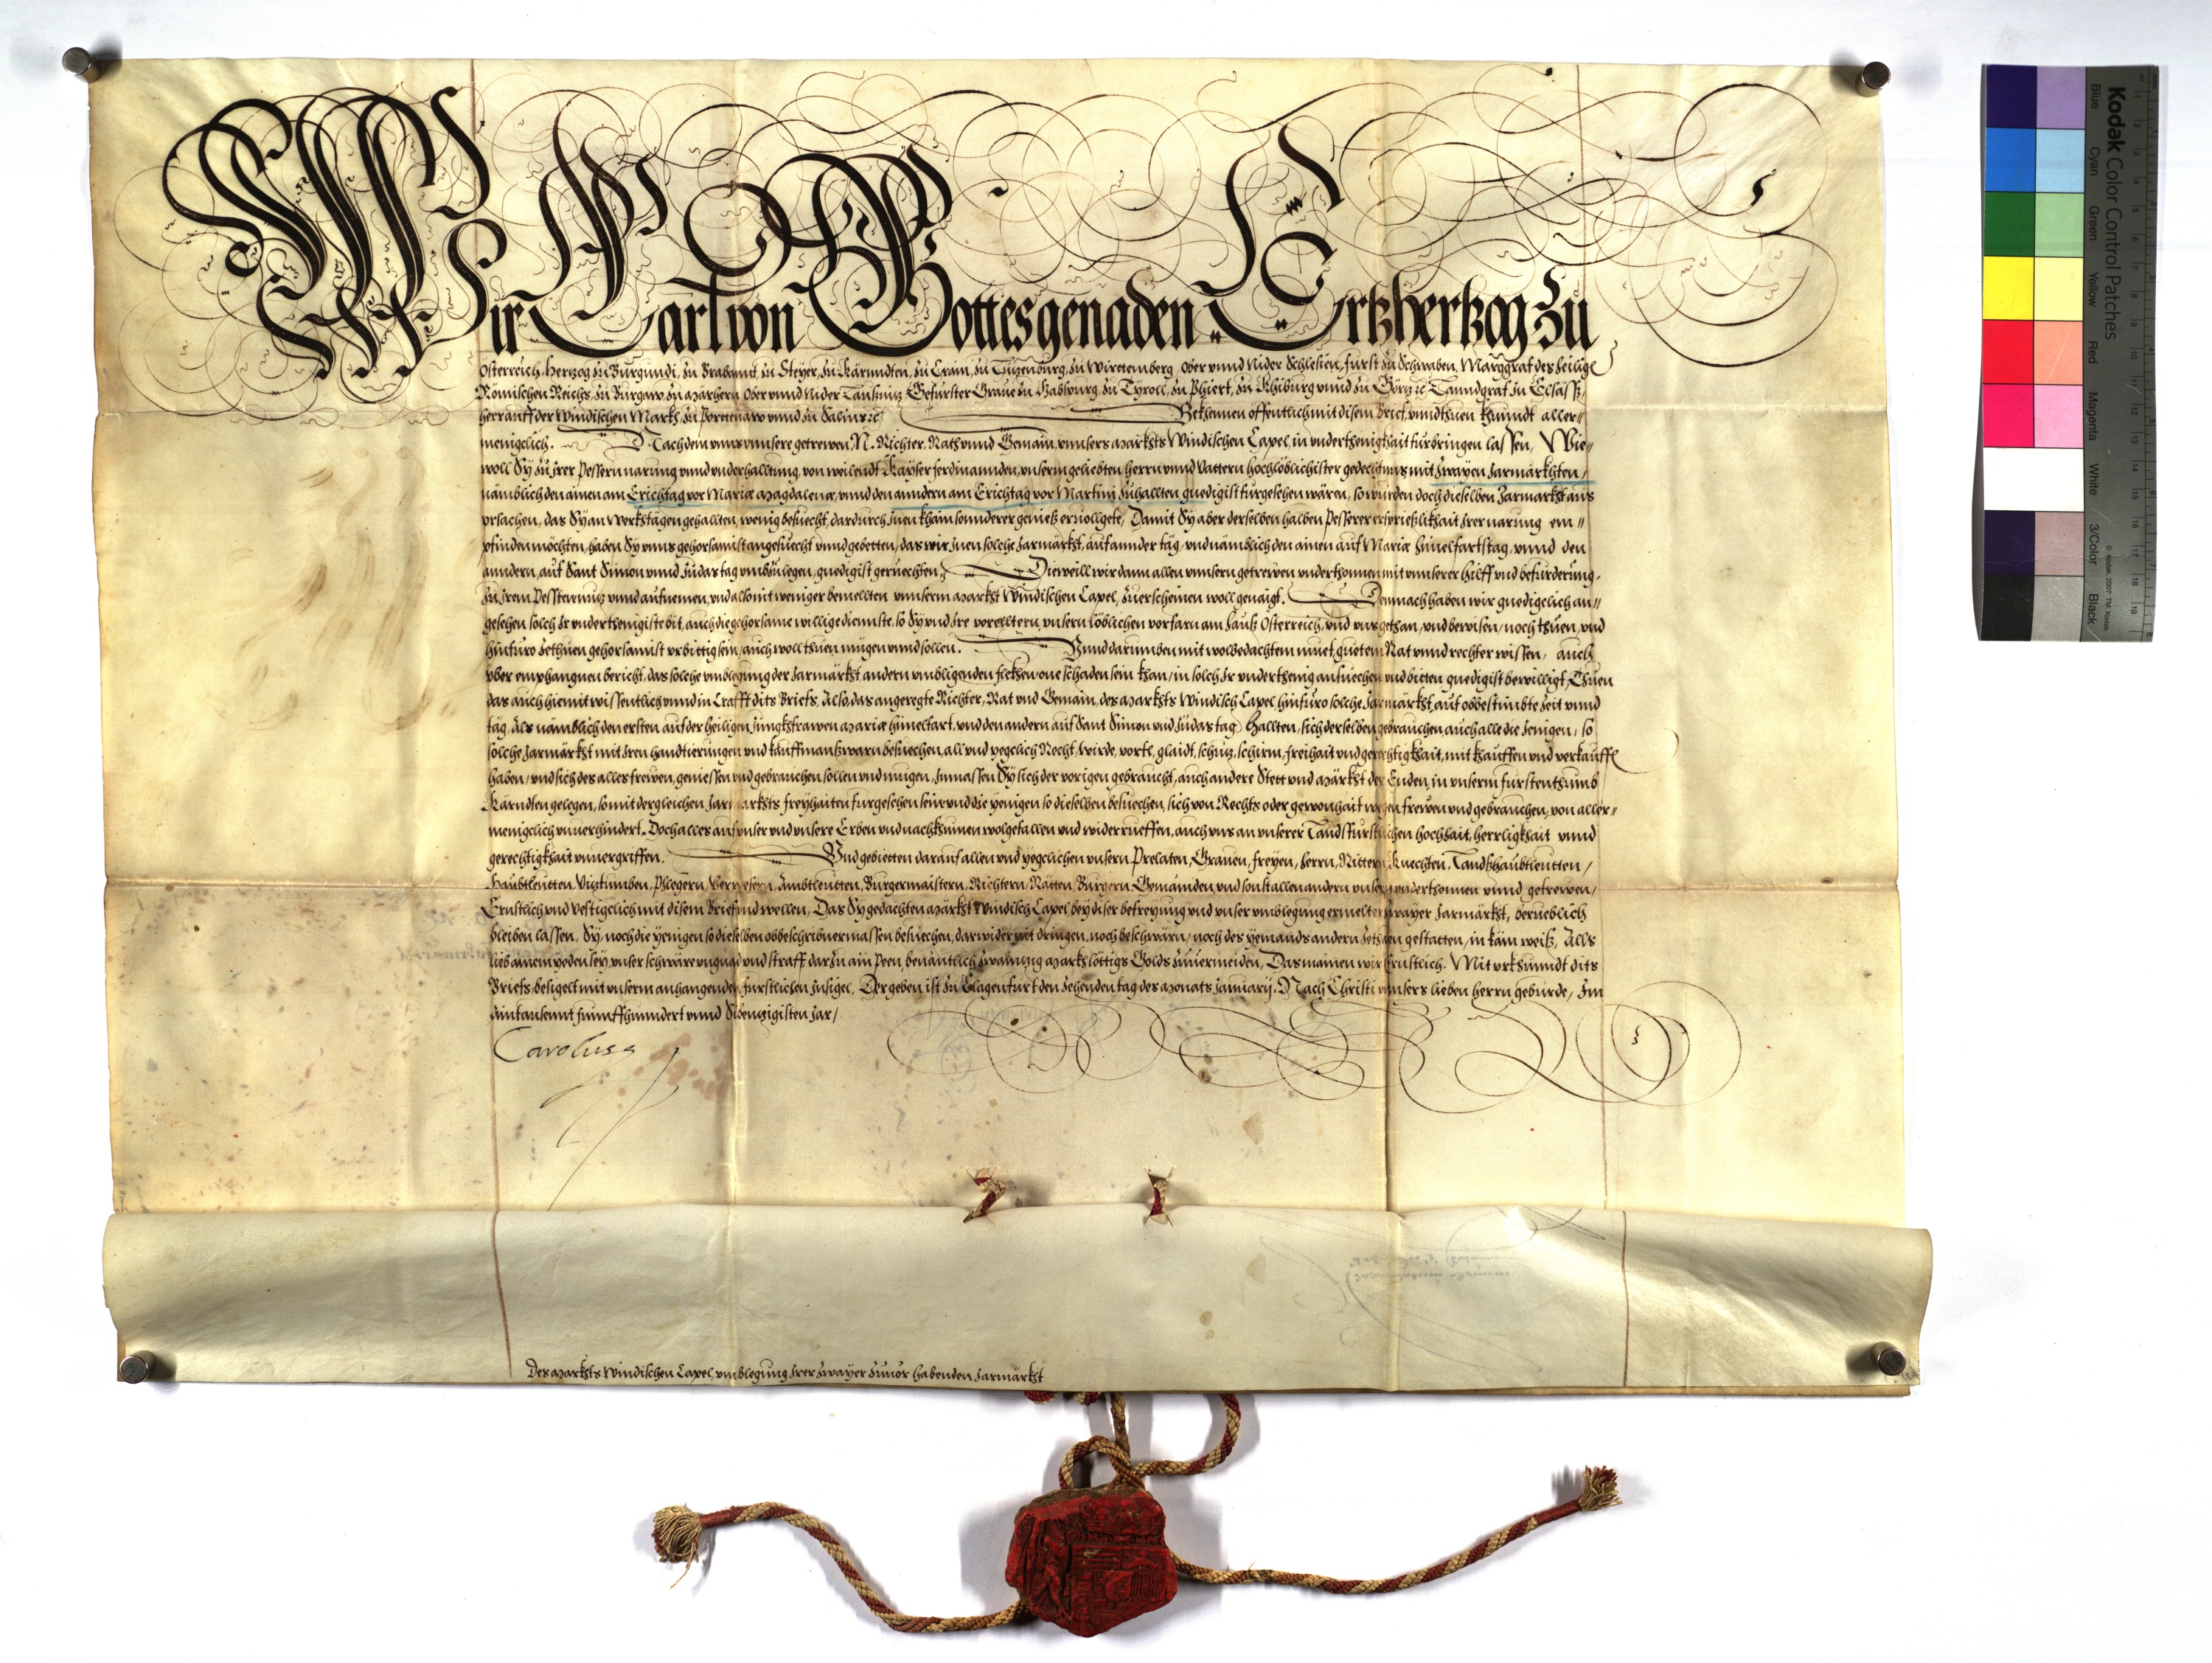 Wir Carl von Gottes genaden Ertzhertzog zu
Österreich. Hertzog zu Burgundi, zu Brabannt, zu Steyer, zu Kärnndten, zu Crain, zu Lützenburg, zu Wirttemberg, Ober vnnd Nider Schlesien, Fürst zu Schwaben, Marggraf des heilige
Römischen Reichs, zu Burgaw, zu Märhern, Ober vnnd Nider Laußnitz, Gefürster Graue zu Habspurg, zu Tyroll, zu Phiert, zu Khiburg vnnd zu Görtz ꝛc. Lanndgraf zu Elsasß,
herr auff der Windischen Markh, zu Porttenaw vnnd zu Salins ꝛc. Bekhennen öffentlich mit disem brief, vnnd thuen khunndt aller=
menigclich. Nachdem vnns vnnsere getrewen, N. Richter, Rath vnnd Gemain, vnnsers Markhts Windischen Capel, in vnderthenigkhait fürbringen lassen, Wie=
woll Sy zu Irer pessern narung vnnd vnderhalltung, von weilendt Kayser Ferdinannden, vnserm geliebten herrn vnnd Vattern hochlöblichister gedechtnus mit zwayen Jarmärkhten,
nämblich den ainen am Erichtag vor Mariæ Magdalenæ, vnnd den anndern am Erichtag vor Martini zuhallten gnedigist fürgesehen wären, so wurden doch dieselben Jarmärkht aus
vrsachen, das Sy an Werkhtägen gehallten, wenig besuecht, dardurch Inen khain sonnderer genieß eruollgete, Damit Sy aber derselben halben pesserer ersprießlikhait Irer narung em=
pfinden möchten, haben Sy vnns gehorsamist angesuecht vnnd gebetten, das wir Inen solche Jarmärkht, auf annder täg, vnd nämblich den ainen auf Mariæ Himelfartstag, vnnd den
anndern, auf Sant Simon vnnd Judas tag vmbzulegen, gnedigist geruechten. Dieweill wir dann allen vnnsern getrewen vnderthonnen mit vnnserer hilff vnd befürderung,
zu Irem pessten nutz vnnd aufnemen, vnd also nit weniger bemellten vnnserm Markht Windischen Capel, zuerscheinen woll genaigt. Demnach haben wir gnedigelich an=
gesehen solch Ir vnderthenigiste bit, auch die gehorsame willige diennste, so Sy vnd Ire voreltern, vnsern löblichen vorfarn am Hauß Österreich, vnd vns gethan, vnd bewisen, noch thuen, vnd
hinfüro zethuen gehorsamist vrbittig sein, auch woll thuen mügen vnnd sollen. Vnnd darumben mit wolbedachtem muet, guetem Rat vnnd rechter wissen, auch
vber empfangnen bericht, das solche vmblegung der Jarmärkht andern vmbligenden flekhen one schaden sein khan, in solch Ir vnderthenig ansuechen vnd bitten gnedigist bewilligt, Thuen
das auch hiemit wissentlich vnnd in Crafft dits Briefs, Also, das angeregte Richter, Rat vnd Gemain, des Markhts Windisch Capel, hinfüro solche Jarmärkht, auf obbestimbte Zeit vnnd
täg, Als nämblich den ersten auf der heiligen Jungkhfrawen Mariæ himelfart, vnd den andern auf Sant Simon vnd Judas tag, Hallten, sich derselben gebrauchen, auch alle die Jenigen, so
solche Jarmärkht mit Iren handtierungen vnd kauffmanßwarn besuechen, all vnd yegclich Recht, wirde, vortl, glaidt, schutz, schirm, freihait vnd gerechtigkhait, mit khauffen vnd verkauffe
haben, vnd sich des alles frewen, geniessen vnd gebrauchen sollen vnd mugen, Inmassen Sy sich der vorigen gebraucht, auch andere Stett vnd Märkht der Enden, in vnserm Fürstenthumb
Kärndten gelegen, so mit dergleichen Jarmarkhts freyhaiten fürgesehen sein, vnd die yenigen so dieselben besuechen, sich von Rechts oder gewonhait wegen frewen vnd gebrauchen, von aller=
menigclich vnuerhindert. Doch alles auf vnser vnd vnsere Erben vnd nachkhumen wolgefallen vnd widerrueffen, auch vns an vnserer Landsfürstlichen hochhait, herrligkhait vnnd
gerechtigkhait vnuergriffen. Vnd gebietten darauf allen vnd yegclichen vnsern Prelaten, Grauen, Freyen, herrn, Rittern, Knechten, Landßhaubtleutten,
Haubtleutten, Vitztumben, Phlegern, Verwesern, Ambtleutten, Burgermaistern, Richtern, Rätten, Burgern, Gemainden, vnd sonst allen andern vnsern vnderthonnen vnnd getrewen,
Ernstlich vnd Vestigclich mit disem Brief vnd wellen, Das Sy gedachten Markht Windisch Capel bey diser befreyung vnd vnser vmblegung ermelter zwayer Jarmärkht, berueblich
bleiben lassen, Sy, noch die yenigen so dieselben obbeschribnermassen besuechen, darwider nit dringen, noch beschwärn, noch des yemands andern zethuen gestatten, in kain weiß, Alls
lieb ainem yeden sey, vnser schwäre vngnad vnd straff, darzu ain Peen, benanntlich zwaintzig Markh löttigs Golds zuuermeiden, Das mainen wir Ernstlich. Mit vrkhundt dits
Briefs, besigelt mit vnserm anhangenden fürstlichen Insigel, Der geben ist zu Clagenfurt den Zehenden tag des Monats January. Nach Christi vnsers lieben herrn geburde, Im
Aintausennt Fünnffhundert vnnd Sibentzigisten Jar,
Carolus
Des Markhts Windischen Capel, vmblegung Irer zwayer zuuor habenden Jarmärkht
Kodak Color Control Patches
Blue Cyan Green Yellow Red Magenta White 3/Color Black
© Kodak, 2007 TM: Kodak